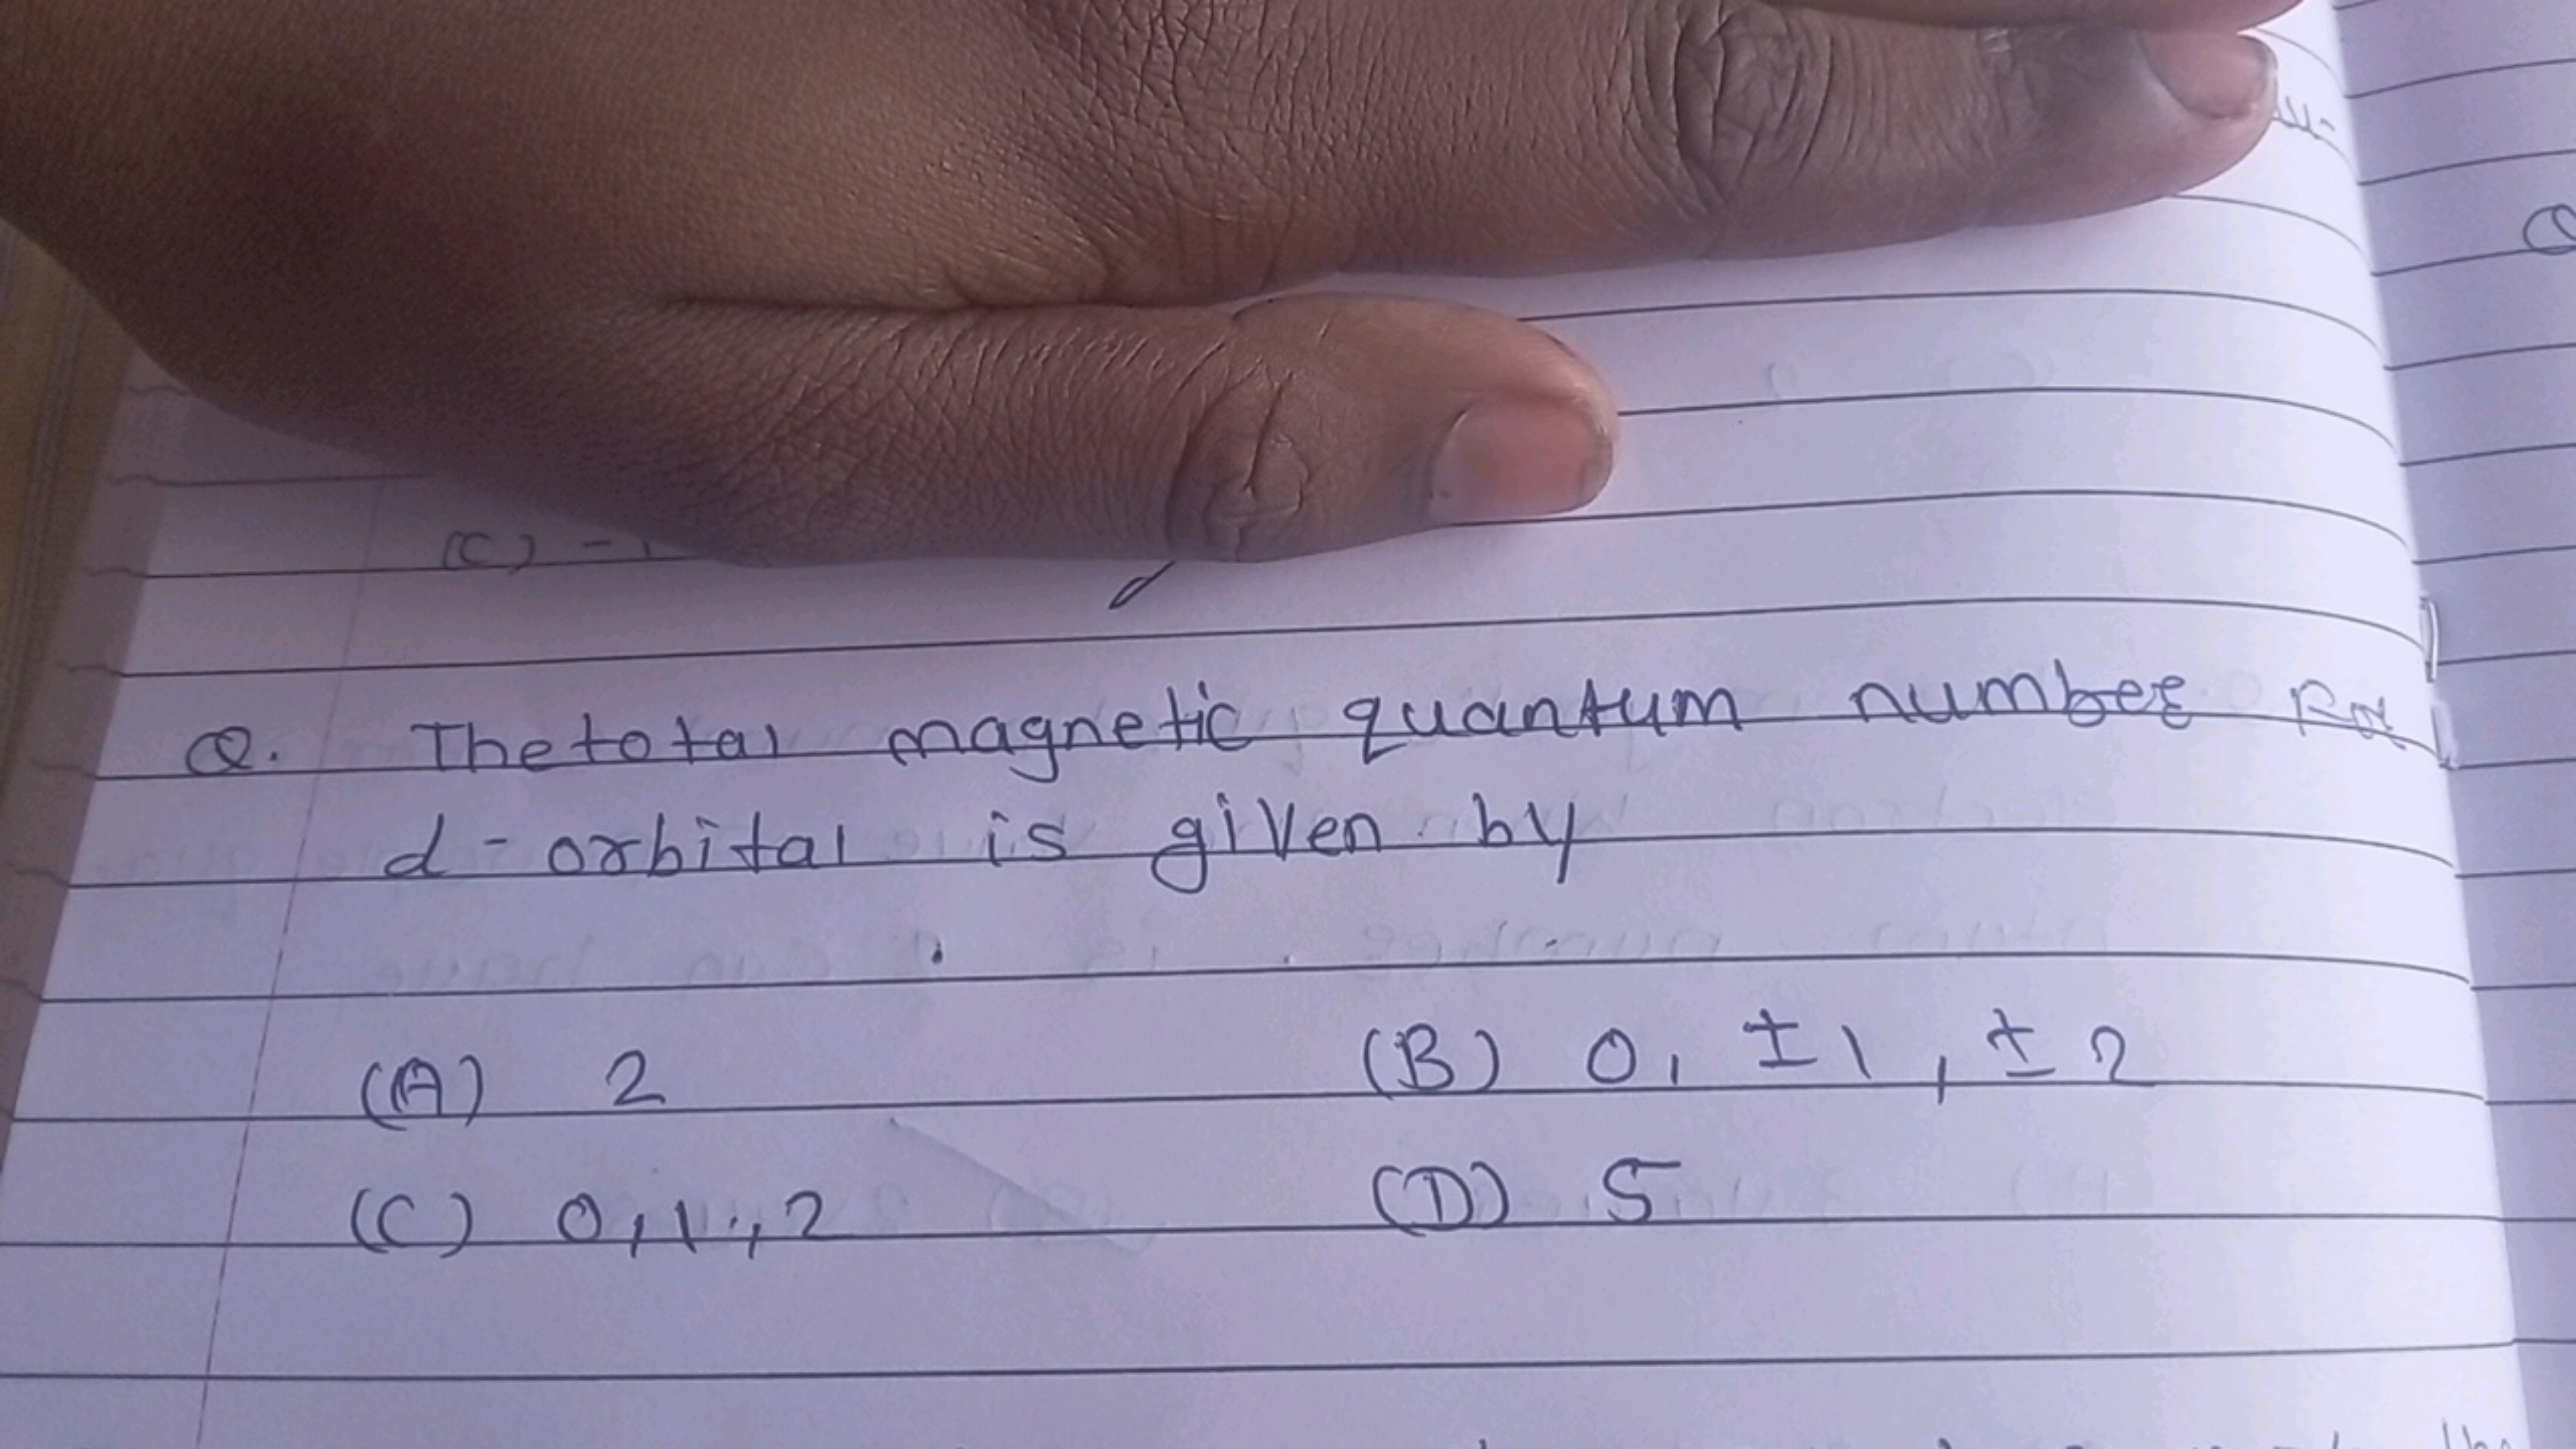 (C) -1
Q. The total magnetic quantum number for
d-orbital is given by
(A) 2 (B) 0, ±1, ±2
(C) 0,1,2 (D) 5